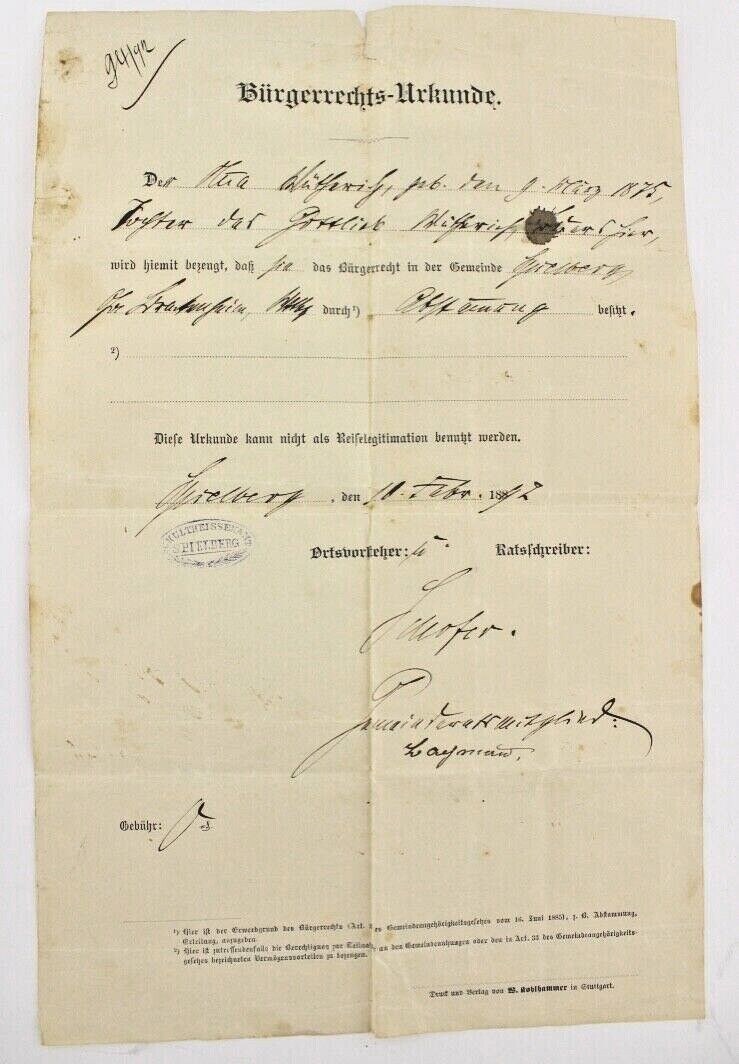 Bürgerrechts-Urkunde.
Der geb. den 9. März 1875,
Tochter des Gottlieb hier,
wird hiemit bezeugt, daß sie das Bürgerrecht in der Gemeinde Spielberg,
durch¹) Abstammung besitzt.
²)
Diese Urkunde kann nicht als Reiselegitimation benutzt werden.
Spielberg, den 10. Febr. 1892
SCHULTHEISSENAMT
SPIELBERG
Ortsvorsteher: u. Ratsschreiber:
Gemeinderatsmitglied:
Gebühr:
¹) Hier ist der Erwerbgrund des Bürgerrechts (Art. des Gemeindeangehörigkeitsgesetzes vom 16. Juni 1885), z. B. Abstammung,
Erteilung, anzugeben.
²) Hier ist zutreffendenfalls die Berechtigung zur Teilnahme an den Gemeindenutzungen oder den in Art. 35 des Gemeindeangehörigkeits-
gesetzes bezeichneten Vermögensvorteilen zu bezeugen.
Druck und Verlag von W. Kohlhammer in Stuttgart.